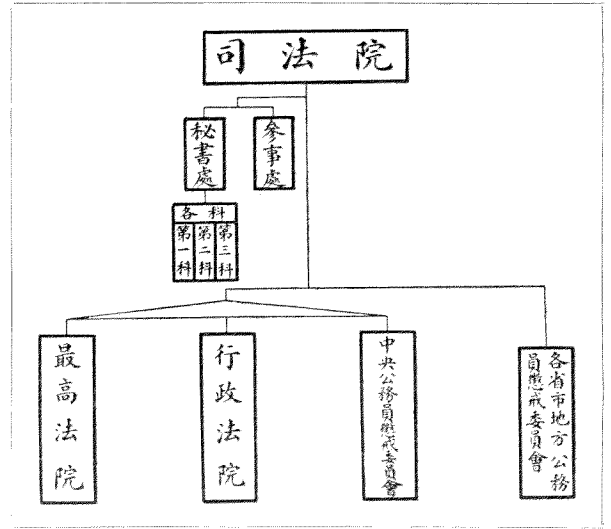 司法院
秘書處
參事處
各科
第一科
第二科
第三科
最高法院
行政法院
中央公務員懲戒委員會
各省市地方公務
員懲戒委員會